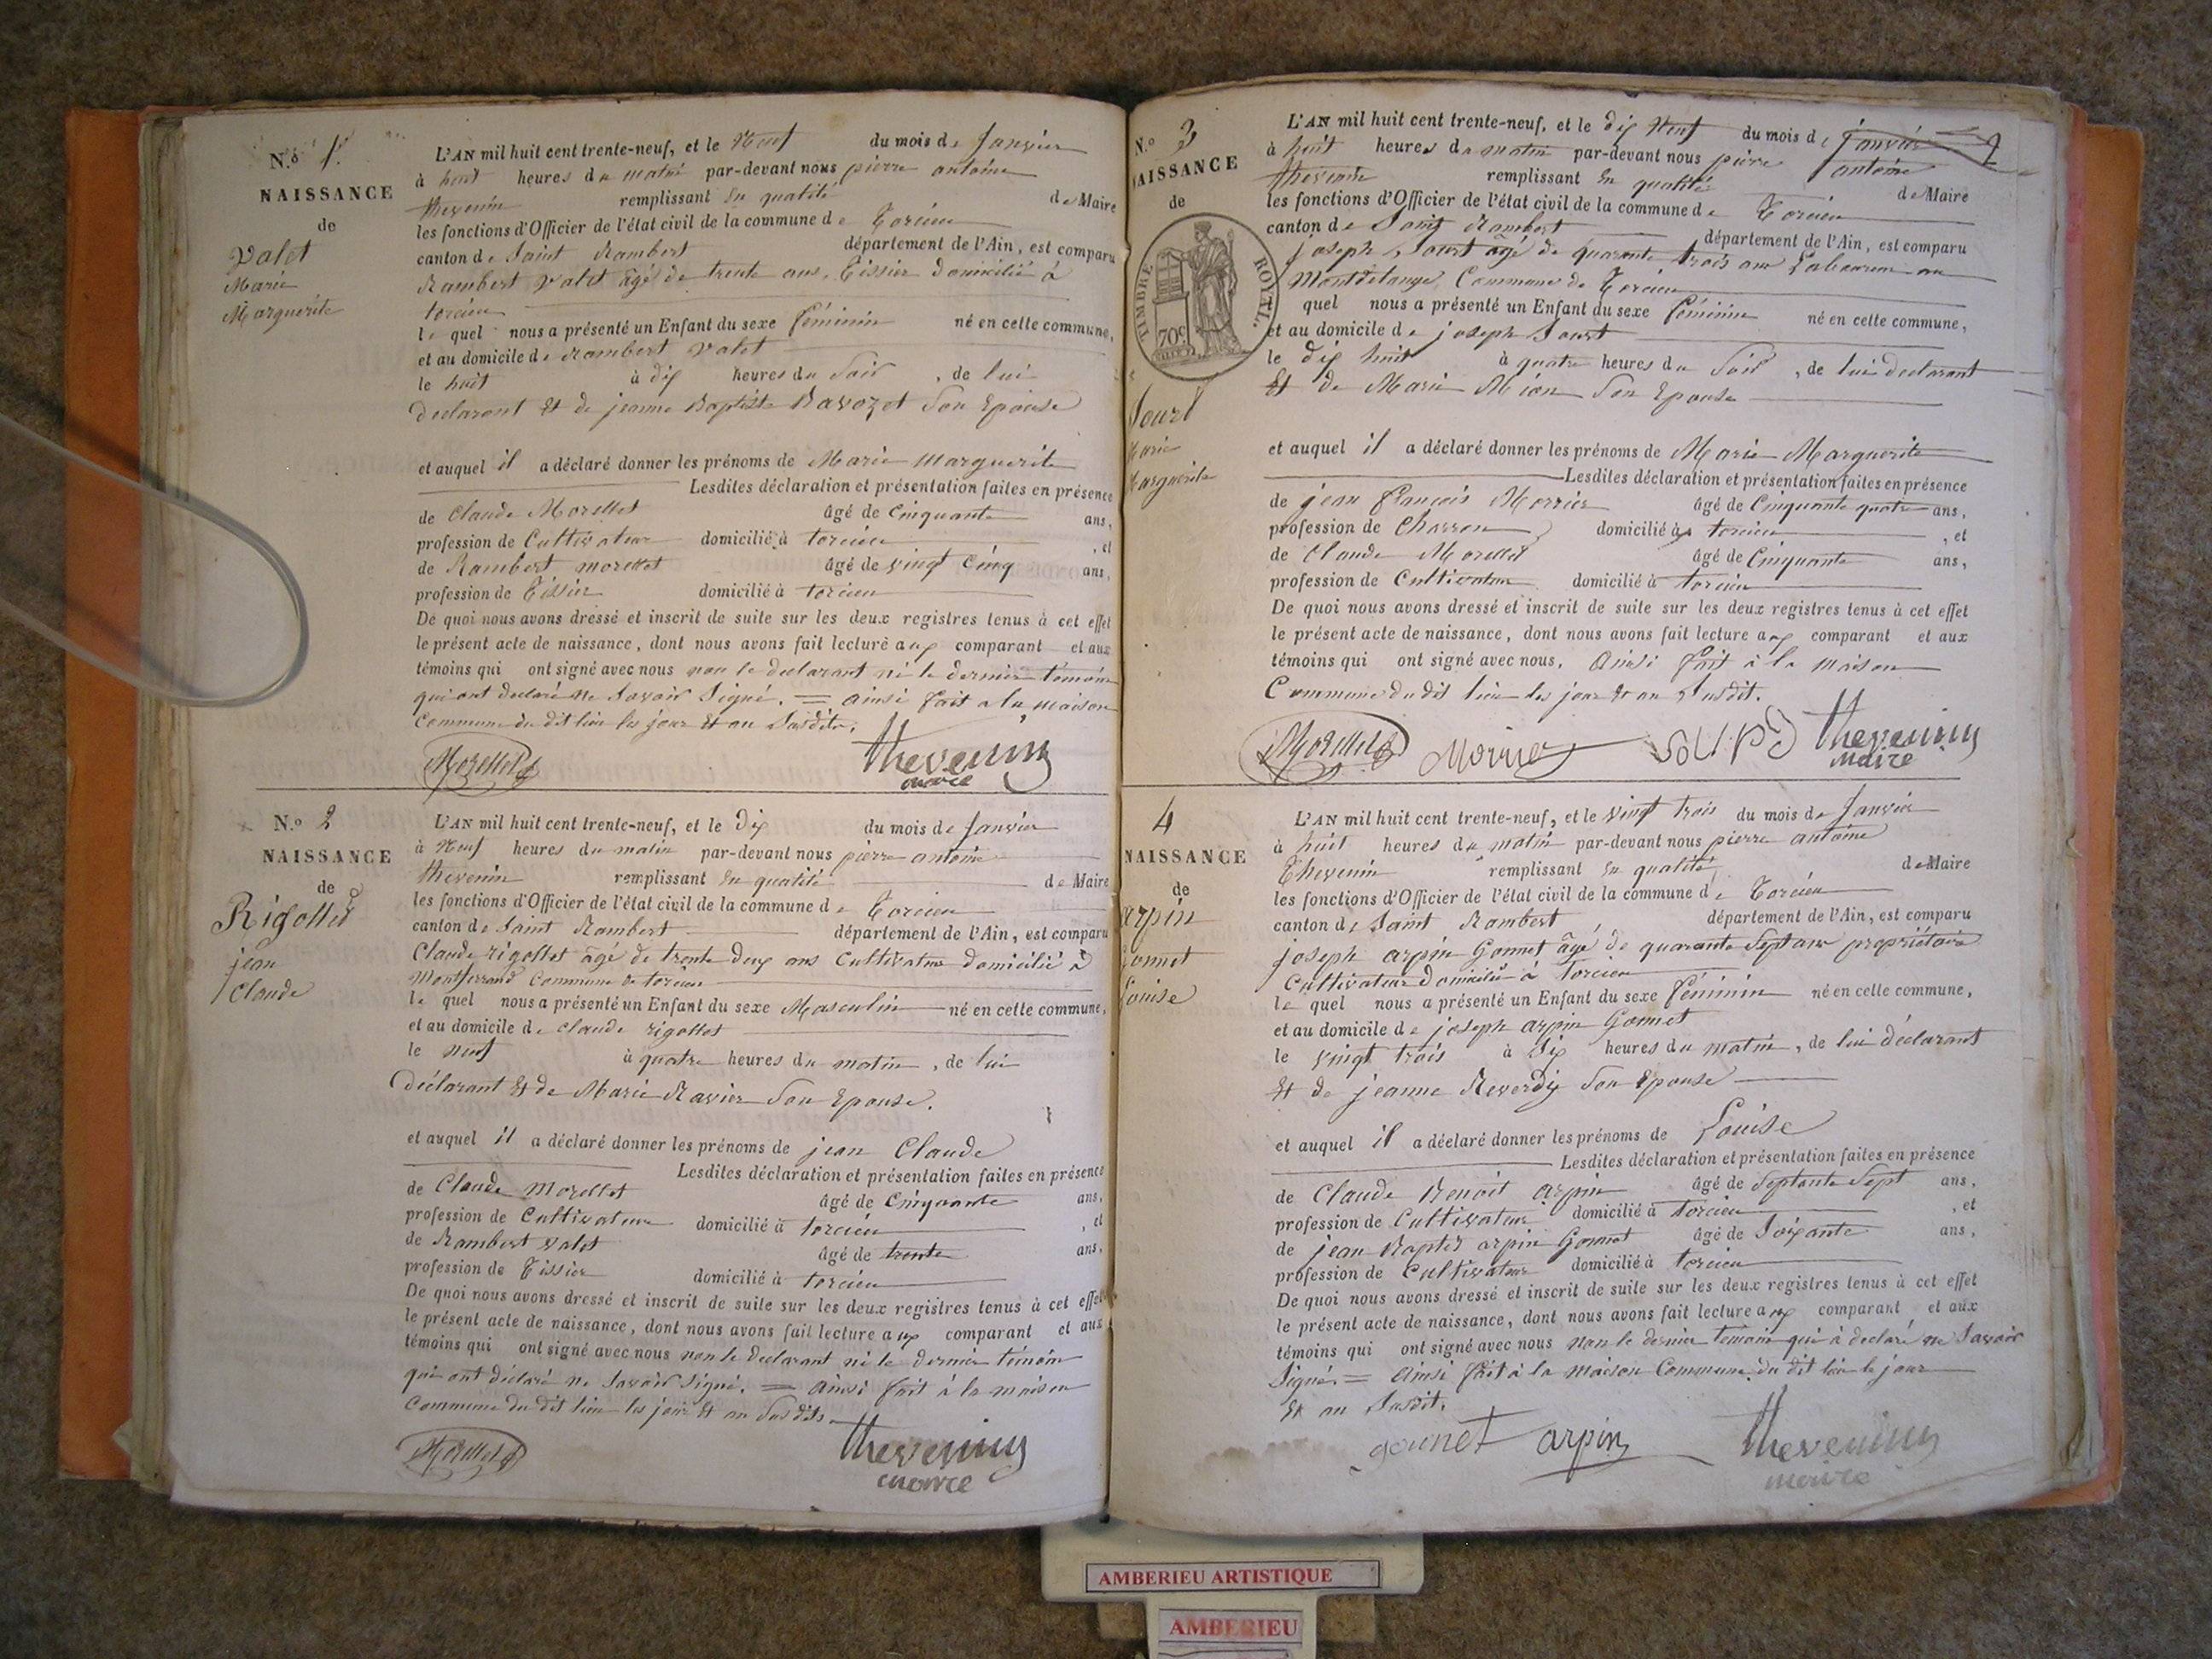 N.º 1.
NAISSANCE
de
Valet
Marie
Marguerite
L'AN mil huit cent trente-neuf, et le Neuf du mois de Janvier
à huit heures du matin par-devant nous pierre antoine
thevenin remplissant En qualité de Maire
les fonctions d'Officier de l'état civil de la commune de Torcieu
canton de Saint Rambert département de l'Ain, est comparu
Rambert Valet âgé de trente ans, Tissier domicilié à
torcieu
le quel nous a présenté un Enfant du sexe féminin né en cette commune,
et au domicile de Rambert Valet
le huit à dix heures du Soir, de lui
declarant Et de jeanne Baptiste Ravozet Son Epouse
et auquel il a déclaré donner les prénoms de Marie Marguerite
Lesdites déclaration et présentation faites en présence
de Claude Morellet âgé de Cinquante ans,
profession de Cultivateur domicilié à torcieu, et
de Rambert morellet âgé de vingt Cinq ans,
profession de Tissier domicilié à torcieu
De quoi nous avons dressé et inscrit de suite sur les deux registres tenus à cet effet
le présent acte de naissance, dont nous avons fait lecture aux comparant et aux
témoins qui ont signé avec nous non le declarant ni le dernier témoin
qui ont declaré ne Savoir Signé. = ainsi fait a la maison
Commune du dit lieu les jour Et an Susdits.
Morellet thevenin
maire
N.º 2
NAISSANCE
de
Rigollet
jean
Claude
L'AN mil huit cent trente-neuf, et le Dix du mois de Janvier
à Neuf heures du matin par-devant nous pierre antoine
thevenin remplissant En qualité de Maire
les fonctions d'Officier de l'état civil de la commune de Torcieu
canton de Saint Rambert département de l'Ain, est comparu
Claude rigollet âgé de trente deux ans Cultivateur domicilié à
Montferrand Commune de torcieu
le quel nous a présenté un Enfant du sexe Masculin né en cette commune,
et au domicile de Claude rigollet
le neuf à quatre heures du matin, de lui
Déclarant Et de Marie Ravier Son Epouse.
et auquel il a déclaré donner les prénoms de jean Claude
Lesdites déclaration et présentation faites en présence
de Claude Morellet âgé de Cinquante ans,
profession de Cultivateur domicilié à torcieu, et
de Rambert Valet âgé de trente ans,
profession de Tissier domicilié à torcieu
De quoi nous avons dressé et inscrit de suite sur les deux registres tenus à cet effet
le présent acte de naissance, dont nous avons fait lecture aux comparant et aux
témoins qui ont signé avec nous non le Declarant ni le dernier témoin
qui ont déclaré ne Savoir Signé. = ainsi fait à la maison
Commune du dit lieu les jour Et an Susdits.
Morellet thevenin
maire
N.º 3
NAISSANCE
de
TIMBRE ROYAL.
70c.
Marie
Marguerite
L'AN mil huit cent trente-neuf, et le dix Neuf du mois de janvier 2
à huit heures du matin par-devant nous pierre antoine
thevenin remplissant En qualité de Maire
les fonctions d'Officier de l'état civil de la commune de Torcieu
canton de Saint Rambert département de l'Ain, est comparu
joseph âgé de quarante trois ans Laboureur au
Commune de Torcieu
quel nous a présenté un Enfant du sexe féminin né en cette commune,
et au domicile de joseph
le dix huit à quatre heures du Soir, de lui declarant
Et de Marie Son Epouse
et auquel il a déclaré donner les prénoms de Marie Marguerite
Lesdites déclaration et présentation faites en présence
de jean françois Morrier âgé de Cinquante quatre ans,
profession de Charron domicilié à torcieu, et
de Claude Morellet âgé de Cinquante ans,
profession de Cultivateur domicilié à torcieu
De quoi nous avons dressé et inscrit de suite sur les deux registres tenus à cet effet
le présent acte de naissance, dont nous avons fait lecture aux comparant et aux
témoins qui ont signé avec nous. ainsi fait à la maison
Commune du dit lieu les jour Et an Susdit.
Morellet Morrier thevenin
maire
4
NAISSANCE
de
arpin
Gonnet
Louise
L'AN mil huit cent trente-neuf, et le vingt trois du mois de Janvier
à huit heures du matin par-devant nous pierre antoine
Thevenin remplissant En qualité de Maire
les fonctions d'Officier de l'état civil de la commune de Torcieu
canton de Saint Rambert département de l'Ain, est comparu
joseph arpin Gonnet âgé de quarante Sept ans propriétaire
Cultivateur Domicilié à Torcieu
le quel nous a présenté un Enfant du sexe féminin né en cette commune,
et au domicile de joseph arpin Gonnet
le vingt trois à Six heures du matin, de lui déclarant
Et de jeanne Reverdy Son Epouse
et auquel il a déclaré donner les prénoms de Louise
Lesdites déclaration et présentation faites en présence
de Claude Benoit arpin âgé de Septante Sept ans,
profession de Cultivateur domicilié à torcieu, et
de jean Baptiste arpin Gonnet âgé de Soixante ans,
profession de Cultivateur domicilié à torcieu
De quoi nous avons dressé et inscrit de suite sur les deux registres tenus à cet effet
le présent acte de naissance, dont nous avons fait lecture aux comparant et aux
témoins qui ont signé avec nous non le dernier témoin qui à declaré ne Savoir
Signé. = ainsi fait à la Maison Commune du dit lieu le jour
Et an Susdit.
gonnet arpin thevenin
maire
AMBERIEU ARTISTIQUE
AMBERIEU